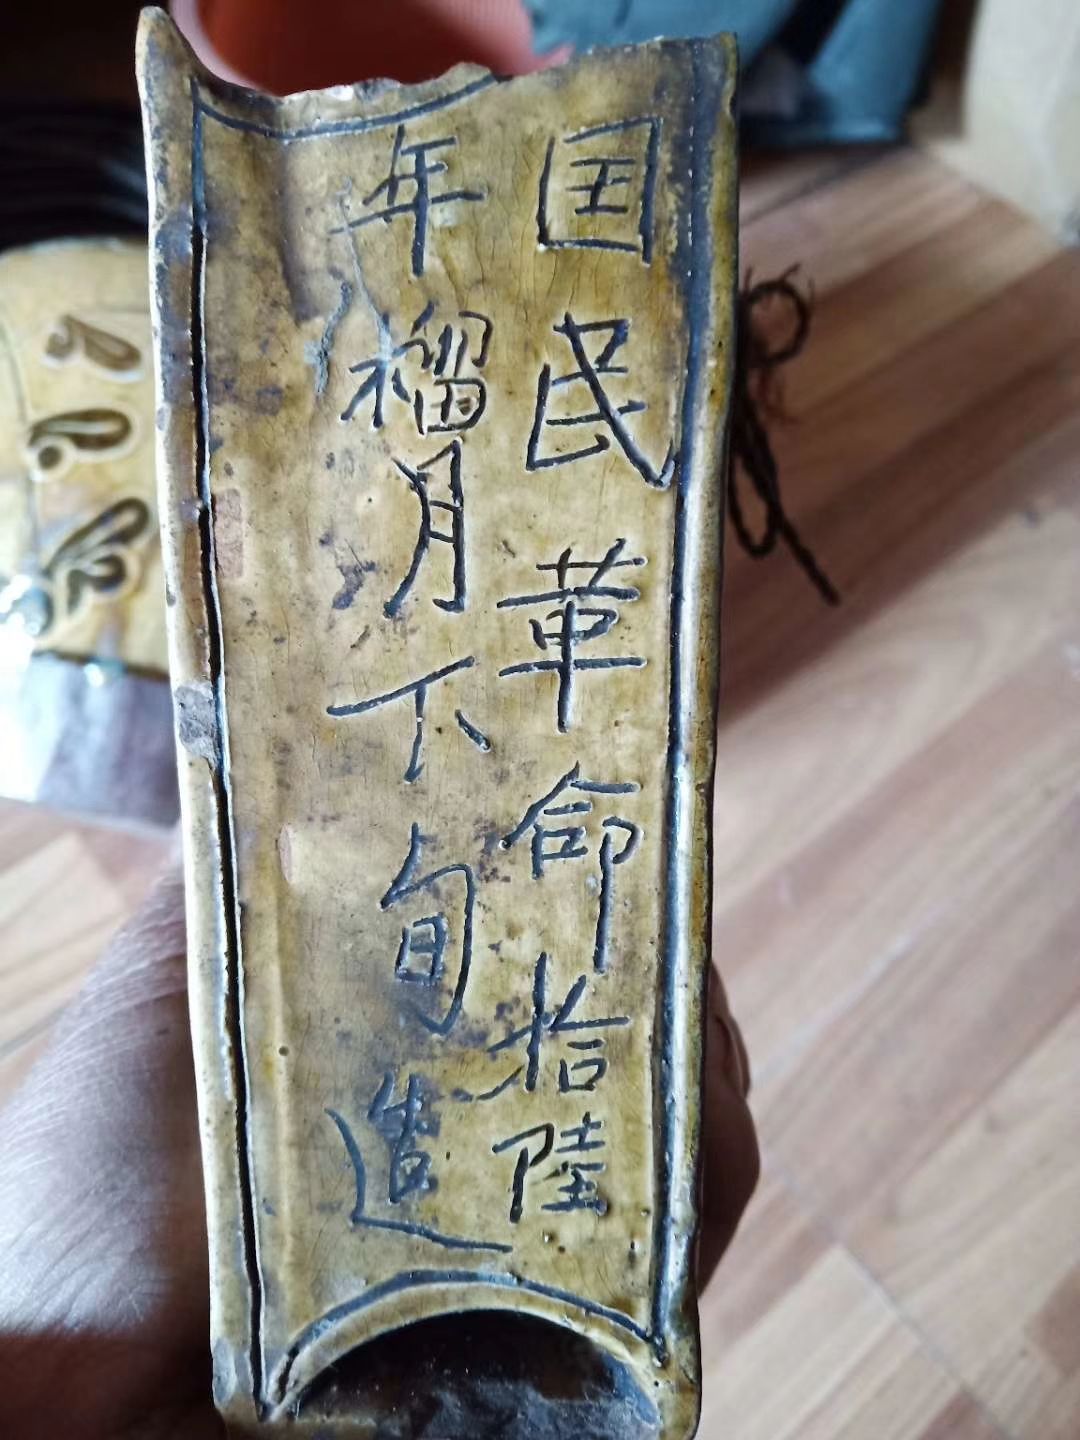 国民革命拾陸
年榴月下旬造